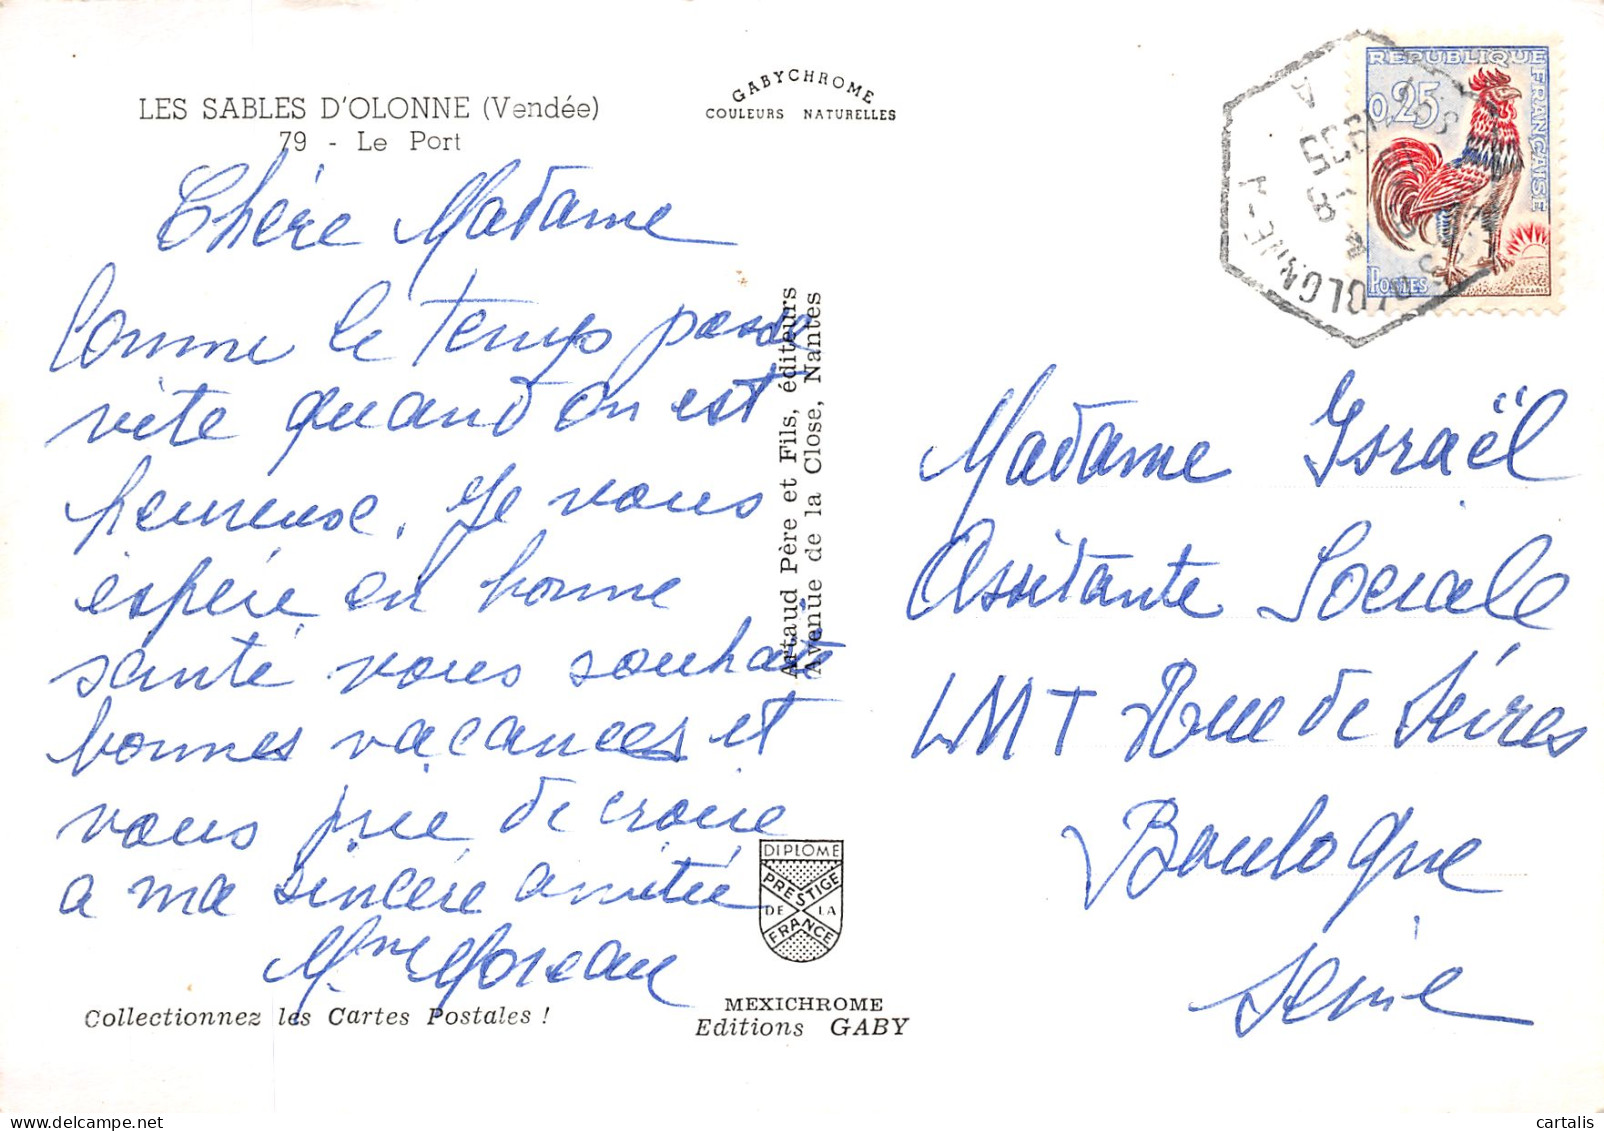 LES SABLES D'OLONNE (Vendée)
79 - Le Port
GABYCHROME
COULEURS NATURELLES
Chère Madame
Comme le temps passe
vite quand on est
heureuse. Je vous
espére en bonne
santé vous souhaite
bonnes vacances et
vous prie de croire
a ma sincère amitié
Mme Moreau
Collectionnez les Cartes Postales !
Artaud Père et Fils, éditeurs
Avenue de la Close, Nantes
DIPLOME
PRESTIGE
DE LA
FRANCE
MEXICHROME
Editions GABY
REPUBLIQUE FRANÇAISE
0,25
POSTES
DECARIS
Madame Israël
Assitante Sociale
LMT Rue de Sévres
Boulogne
Seine
cartalis